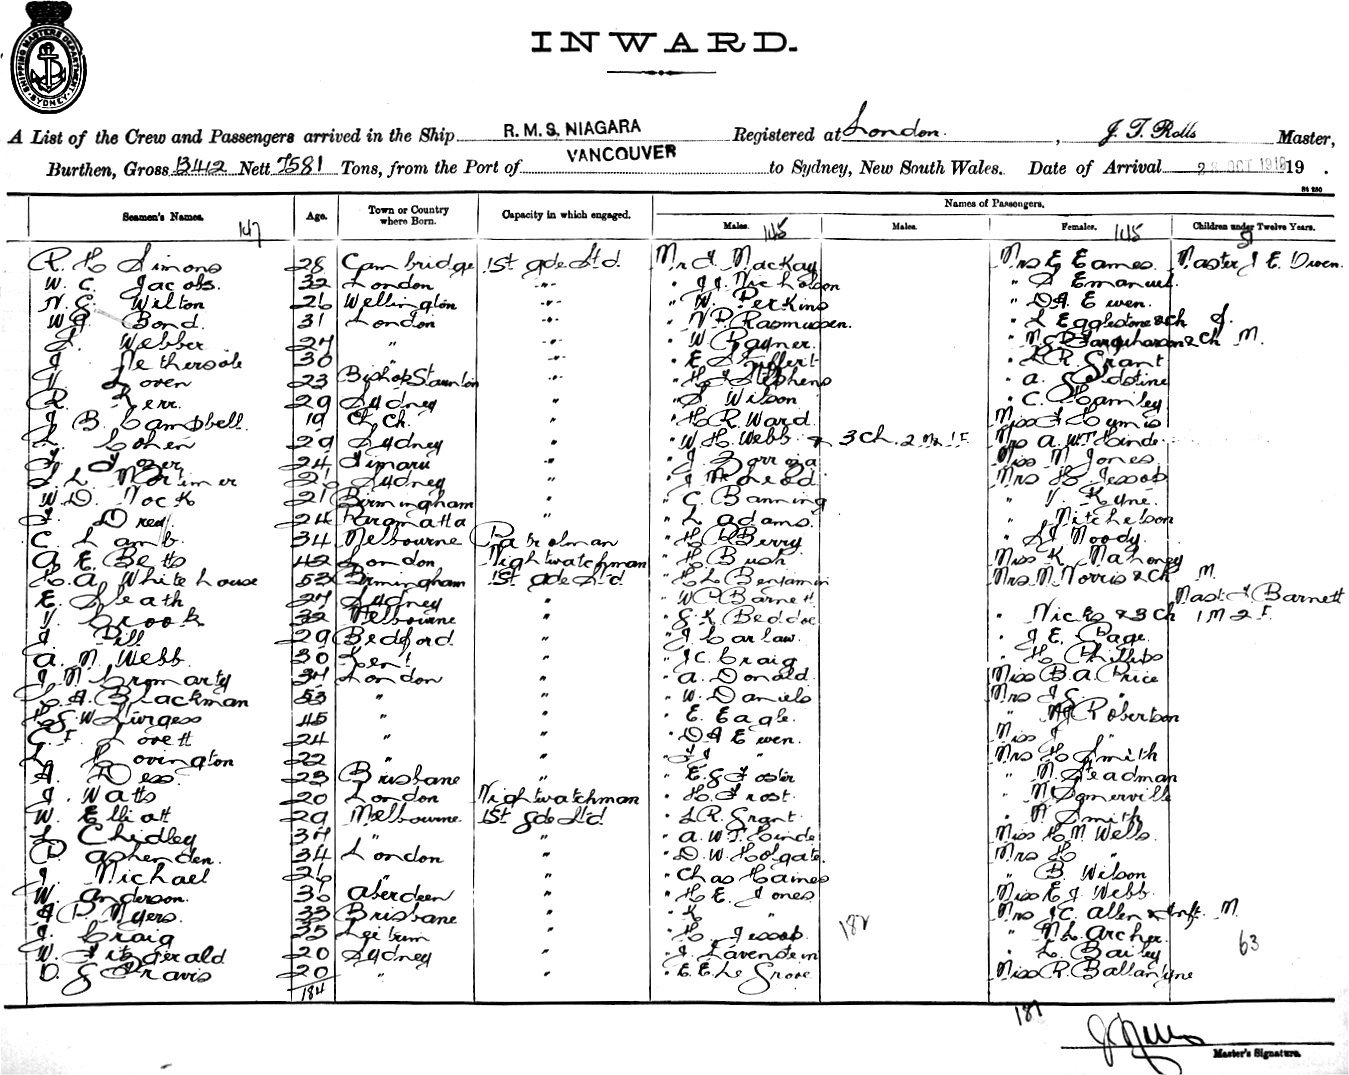 SHIPPING MASTERS DEPARTMENT SYDNEY
INWARD.
A List of the Crew and Passengers arrived in the Ship R.M.S. NIAGARA Registered at London. , J. T. Rolls Master,
Burthen, Gross Nett 7581 Tons, from the Port of VANCOUVER to Sydney, New South Wales. Date of Arrival OCT 19 .
Seamen's Names. Age. Town or Country where Born. Capacity in which engaged. Names of Passengers.
Males. Males. Females. Children under Twelve Years.
147 145 145
R. H. Simons 28 Cambridge 1st gde Std Mr J MacKay Mrs E Eames Master J E Owen.
W. C. Jacobs. 32 London " " J J Nicholson " S Emanuel
N. E. Wilton 26 Wellington " " W. Perkins " D A Ewen.
W J Bond. 31 London " " N P Rasmussen. " L Egglestone & ch
S. Webber 27 " " " W Rayner. " Farquharson & Ch M.
J Nethersole 30 " " " E S " L R. Grant
V. Loven 23 Bishop " " H J Stephens " A.
R. Kerr. 29 Sydney " " S Wilson " C. Hamley
J B. Campbell. 19 Ch Ch. " " H R Ward
L Cohen 29 Sydney " " W H. Webb & 3 Ch. 2 M 1 F Mrs A. W T Hinde
24 Timaru " " J Miss M Jones
J L Mortimer 21 Sydney " " J McLeod Mrs H Jessob
W. D. Nock 21 Birmingham " " C. Banning " V. Kyne
24 Paramatta " " L Adams. " Mitchelson
C. Lamb. 34 Melbourne Patrolman " H Berry " S J Moody.
A E Betts 42 London Nightwatchman " H Bush Miss K Mahoney
H. A. Whitehouse 53 Birmingham 1st gde Std " H L Benjamin Mrs M Norris & ch M.
E. Heath 27 Sydney " " W C Barnett Mast. J Barnett
V Crook 32 Melbourne " " G K Beddoe " Nicks & 3 Ch 1 M 2 F.
J Pill 29 Bedford. " " J Carlaw. " J E. Page.
A. M. Webb. 30 Kent " " J C. Craig " H Phillibs
J. M Cromarty 37 London " " A. Donald. Miss B. A. Price
A Blackman 53 " " " W. Daniels Mrs J G. "
G W Sturgess 45 " " " E. Eagle. " Robertson
G. F. Lovett 24 " " " D A Ewen. Miss J "
L Hovington 22 " " " " Mrs H Smith
A. Dess. 23 Brisbane " " E. G Foster " M. Steadman
J. Watts 20 London Nightwatchman " H. Frost. " M Somerville
W. Elliott 29 Melbourne 1st Gde Std " L R. Grant " N Smith
L Chidley 37 " " " A. W T. Hinde Miss H M Wells.
P Ashenden. 34 London " " D. W Holgate. Mrs H "
J. Michael 26 " " " Chas Hames " B. Wilson
W. Anderson. 36 Aberdeen " " H E. Jones Miss E J Webb.
A P. Myers. 33 Brisbane " " K " Mrs J C. Allen & Inft. M
J. Craig 35 Leitrim " " H. Jessob. 182 " M L. Archer. 63
W. Fitzgerald 20 Sydney " " J. Lavenstein " L. Bailey
D. G Travis 20 " " " E. E. Le Grove Miss R. Ballantyne
184
187
Master's Signature.